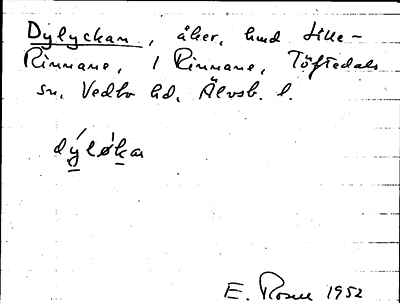 Dylyckan, åker, hmd Lille-
Rinnane, 1 Rinnane, Töftedals
sn, Vedbo hd, Älvsb. l.
dýløkan
E. Rosell 1952